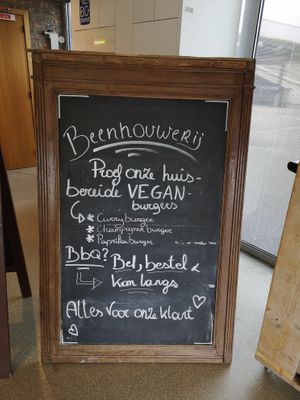 Beenhouwerij
Proef onze huis-
bereide VEGAN
burgers
Curryburger
Champignonburger
Paprikaburger
BbQ? Bel, bestel &
kom langs
Alles voor onze klant